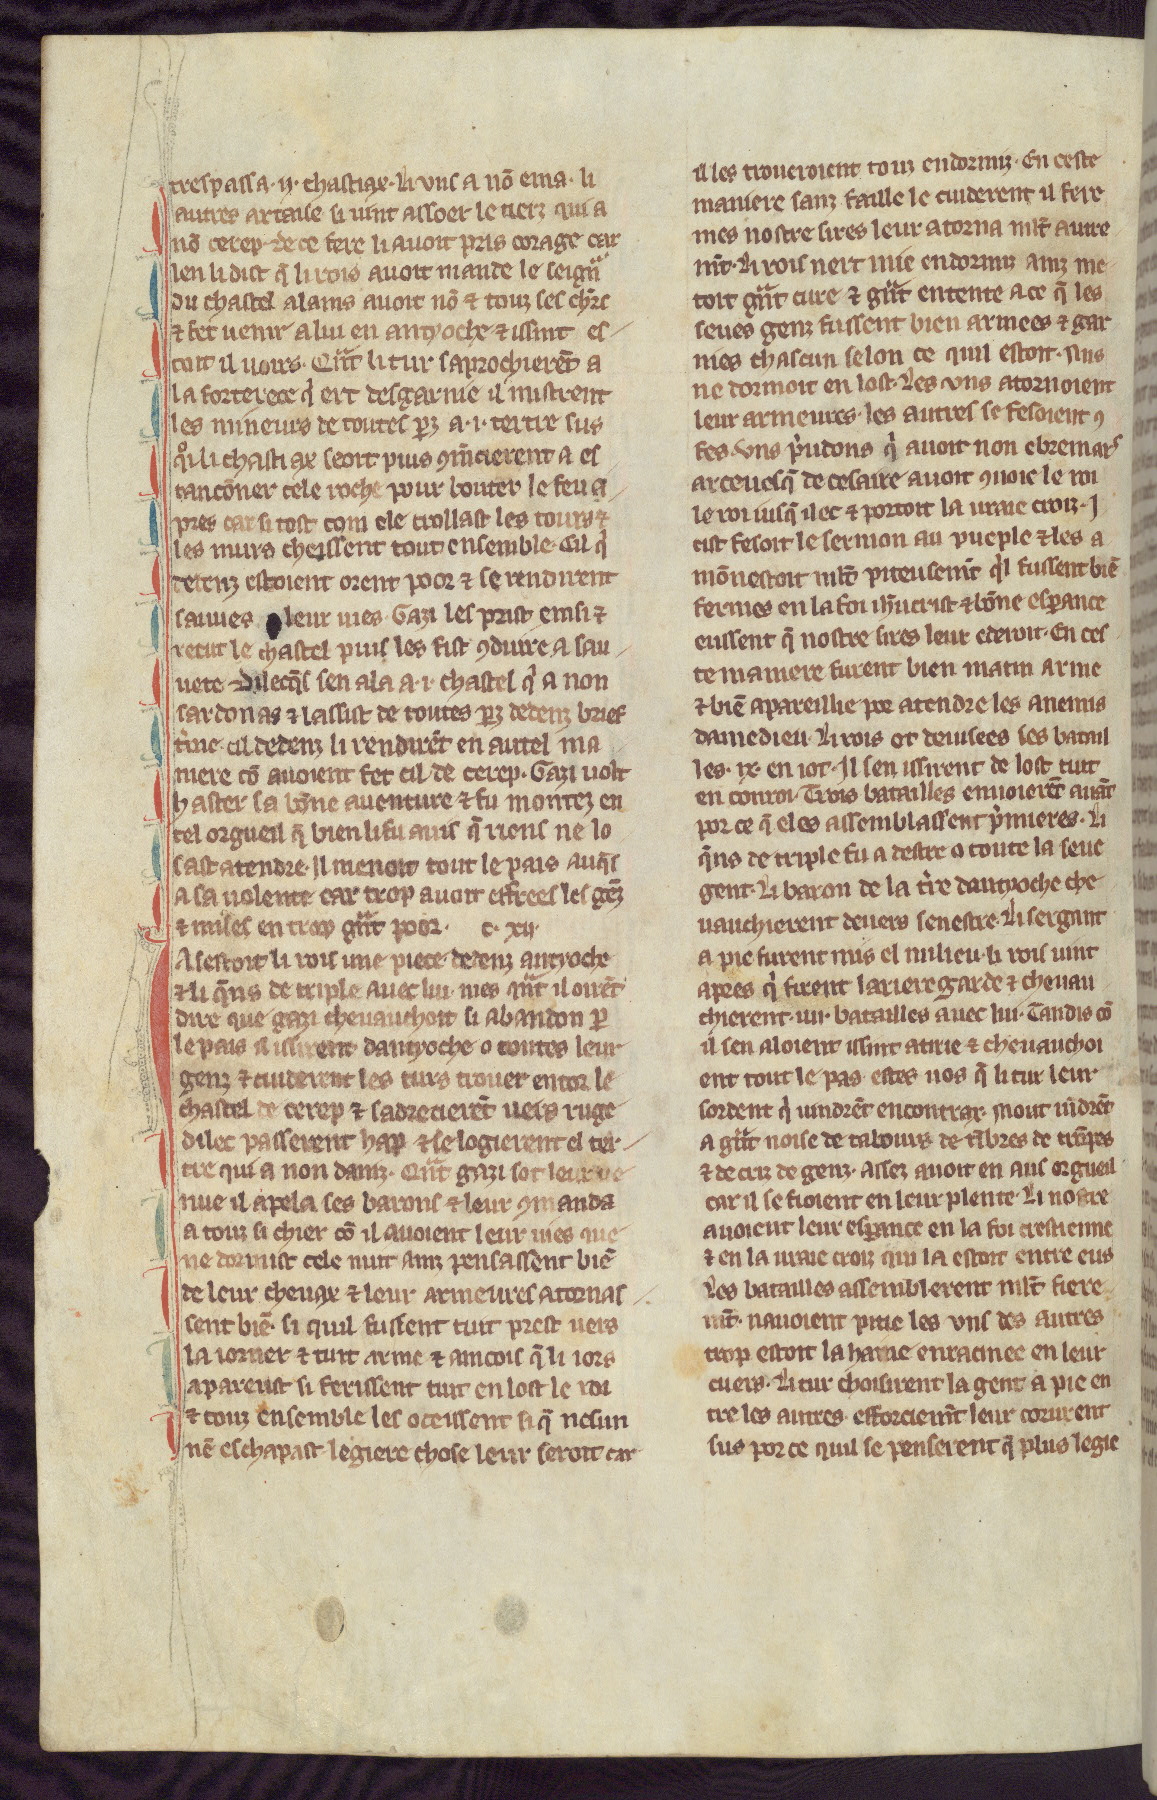 trespassa .ii. chastiax. Li uns a nō ema. li
autres artaise si uint assoer le tierz qui a
nō cerep. de ce fere li auoit pris corage car
len li dist q̄ li rois auoit mande le seignr̄
du chastel alains auoit nō ⁊ touz ses chr̄s
⁊ fet uenir a lui en antyoche ⁊ issint es
toit il uoirs. Qn̄t li tur saprochierēt a
la forterece q̓ ert desgarnie il mistrent
les mineurs de toutes parz a .i. tertre sus
qoi li chastiax seoit puis ꝯm̄cierent a es
tancōner cele roche pour bouter le feu a
pres car si tost com ele crollast les tours ⁊
les murs cheissent tout ensemble. Cil q̓
dedenz estoient orent poor ⁊ se rendirent
sauues leur uies. Gazi les prist einsi ⁊
recut le chastel puis les fist ꝯduire a sau
uete. Dilecq̄s sen ala a .i. chastel q̓ a non
sardonas ⁊ lassist de toutes parz dedenz brief
t̓me. cil dedenz li rendirēt en autel ma
niere cō auoient fet cil de cerep. Gazi uolt
haster sa bōne auenture ⁊ fu montez en
tel orgueil q̄ bien li fu auis q̄ riens ne lo
sast atendre. Il menoit tout le pais auq̄s
a sa uolente car trop auoit effrees les gēz
⁊ mises en trop grāt poor. c. xii.
A sestoit li rois une piece dedenz antyoche
⁊ li q̄ns de triple auec lui. mes qn̄t il oirēt
dire que gazi cheuauchoit si abandon p̲
le pais il issirent dantyoche o toutes leur
genz ⁊ cuiderent les turs trouer entor le
chastel de cerep ⁊ sadrecierēt uers ruge
dilec passerent hap ⁊ se logierent el ter
tre qui a non daniz. Qn̄t gazi sot leur ue
nue il apela ses barons ⁊ leur ꝯmanda
a touz si chier cō il auoient leur uies que
ne dormist cele nuit ainz pensassent biē
de leur cheuax ⁊ leur armeures atornas
sent biē. si quil fussent tuit prest uers
la iornee ⁊ tuit arme ⁊ aincois q̄ li iors
apareust si ferissent tuit en lost le roi
⁊ touz ensemble les oceissent si q̄ nesun
nē eschapast. legiere chose leur seroit car
il les troueroient touz endormiz. En ceste
maniere sanz faille le cuiderent il fere
mes nostre sires leur atorna ml̄t autre
mēt. Li rois nert mie endormiz ainz me
toit grāt cure ⁊ grāt entente a ce q̄ les
seues genz fussent bien armees ⁊ gar
nies chascun selon ce quil estoit. Nus
ne dormoit en lost. Les uns atornoient
leur armeures. les autres se fesoient ꝯ
fes. Uns p̓udons q̓ auoit non ebremars
arceuesq̄ de cesaire auoit ꝯuoie le roi
le roi iusq̄ ilec ⁊ portoit la uraie croiz. I
cist fesoit le sermon au pueple ⁊ les a
mōnestoit ml̄t piteusemēt q̓l fussent biē
fermes en la foi ihūcrist ⁊ bōne esperance
eussent q̄ nostre sires leur ederoit. En ces
te maniere furent bien matin arme
⁊ biē apareillie por atendre les anemis
damedieu. Li rois ot deuisees ses batail
les. ix. en iot. Il sen issirent de lost tuit
en conroi. Trois batailles enuoierēt auāt
por ce q̄ eles assemblassent p̓mieres. Li
q̄ns de triple fu a destre o toute la seue
gent. Li baron de la t̓re dantyoche che
uauchierent deuers senestre. Li sergant
a pie furent mis el milieu. li rois uint
apres q̓ firent larieregarde ⁊ cheuau
chierent .iiii. batailles auec lui. Tandis cō
il sen aloient issint atirie ⁊ cheuauchoi
ent tout le pas. estes uos q̄ li tur leur
sordent q̓ uindrēt encontrax. Mout uīdrēt
a grāt noise de tabours de tībres de trōpes
⁊ de criz de genz. assez auoit en aus orgueil
car il se fioient en leur plente. Li nostre
auoient leur esperance en la foi crestienne
⁊ en la uraie croiz qui la estoit entre eus
Les batailles assemblerent ml̄t fiere
mēt. nauoient pitie les uns des autres
trop estoit la haine enracinee en leur
cuers. Li tur choisirent la gent a pie en
tre les autres efforciemēt leur corurent
sus por ce quil se penserent q̄ plus legie